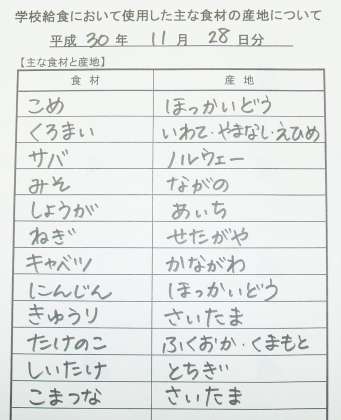 学校給食において使用した主な食材の産地について
平成 30 年 11 月 28 日分
【主な食材と産地】
食材 産地
こめ ほっかいどう
くろまい いわて・やまなし・えひめ
サバ ノルウェー
みそ ながの
しょうが あいち
ねぎ せたがや
キャベツ かながわ
にんじん ほっかいどう
きゅうり さいたま
たけのこ ふくおか・くまもと
しいたけ とちぎ
こまつな さいたま